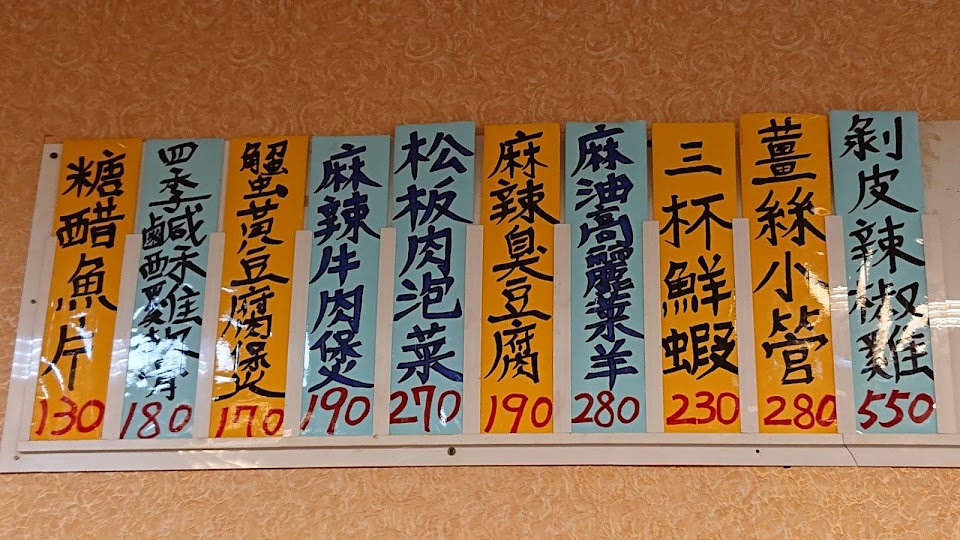 糖醋魚片 130
四季鹹酥雞軟骨 180
蟹黃豆腐煲 170
麻辣牛肉煲 190
松板肉泡菜 270
麻辣臭豆腐 190
麻油高麗菜羊 280
三杯鮮蝦 230
薑絲小管 280
剝皮辣椒雞 550